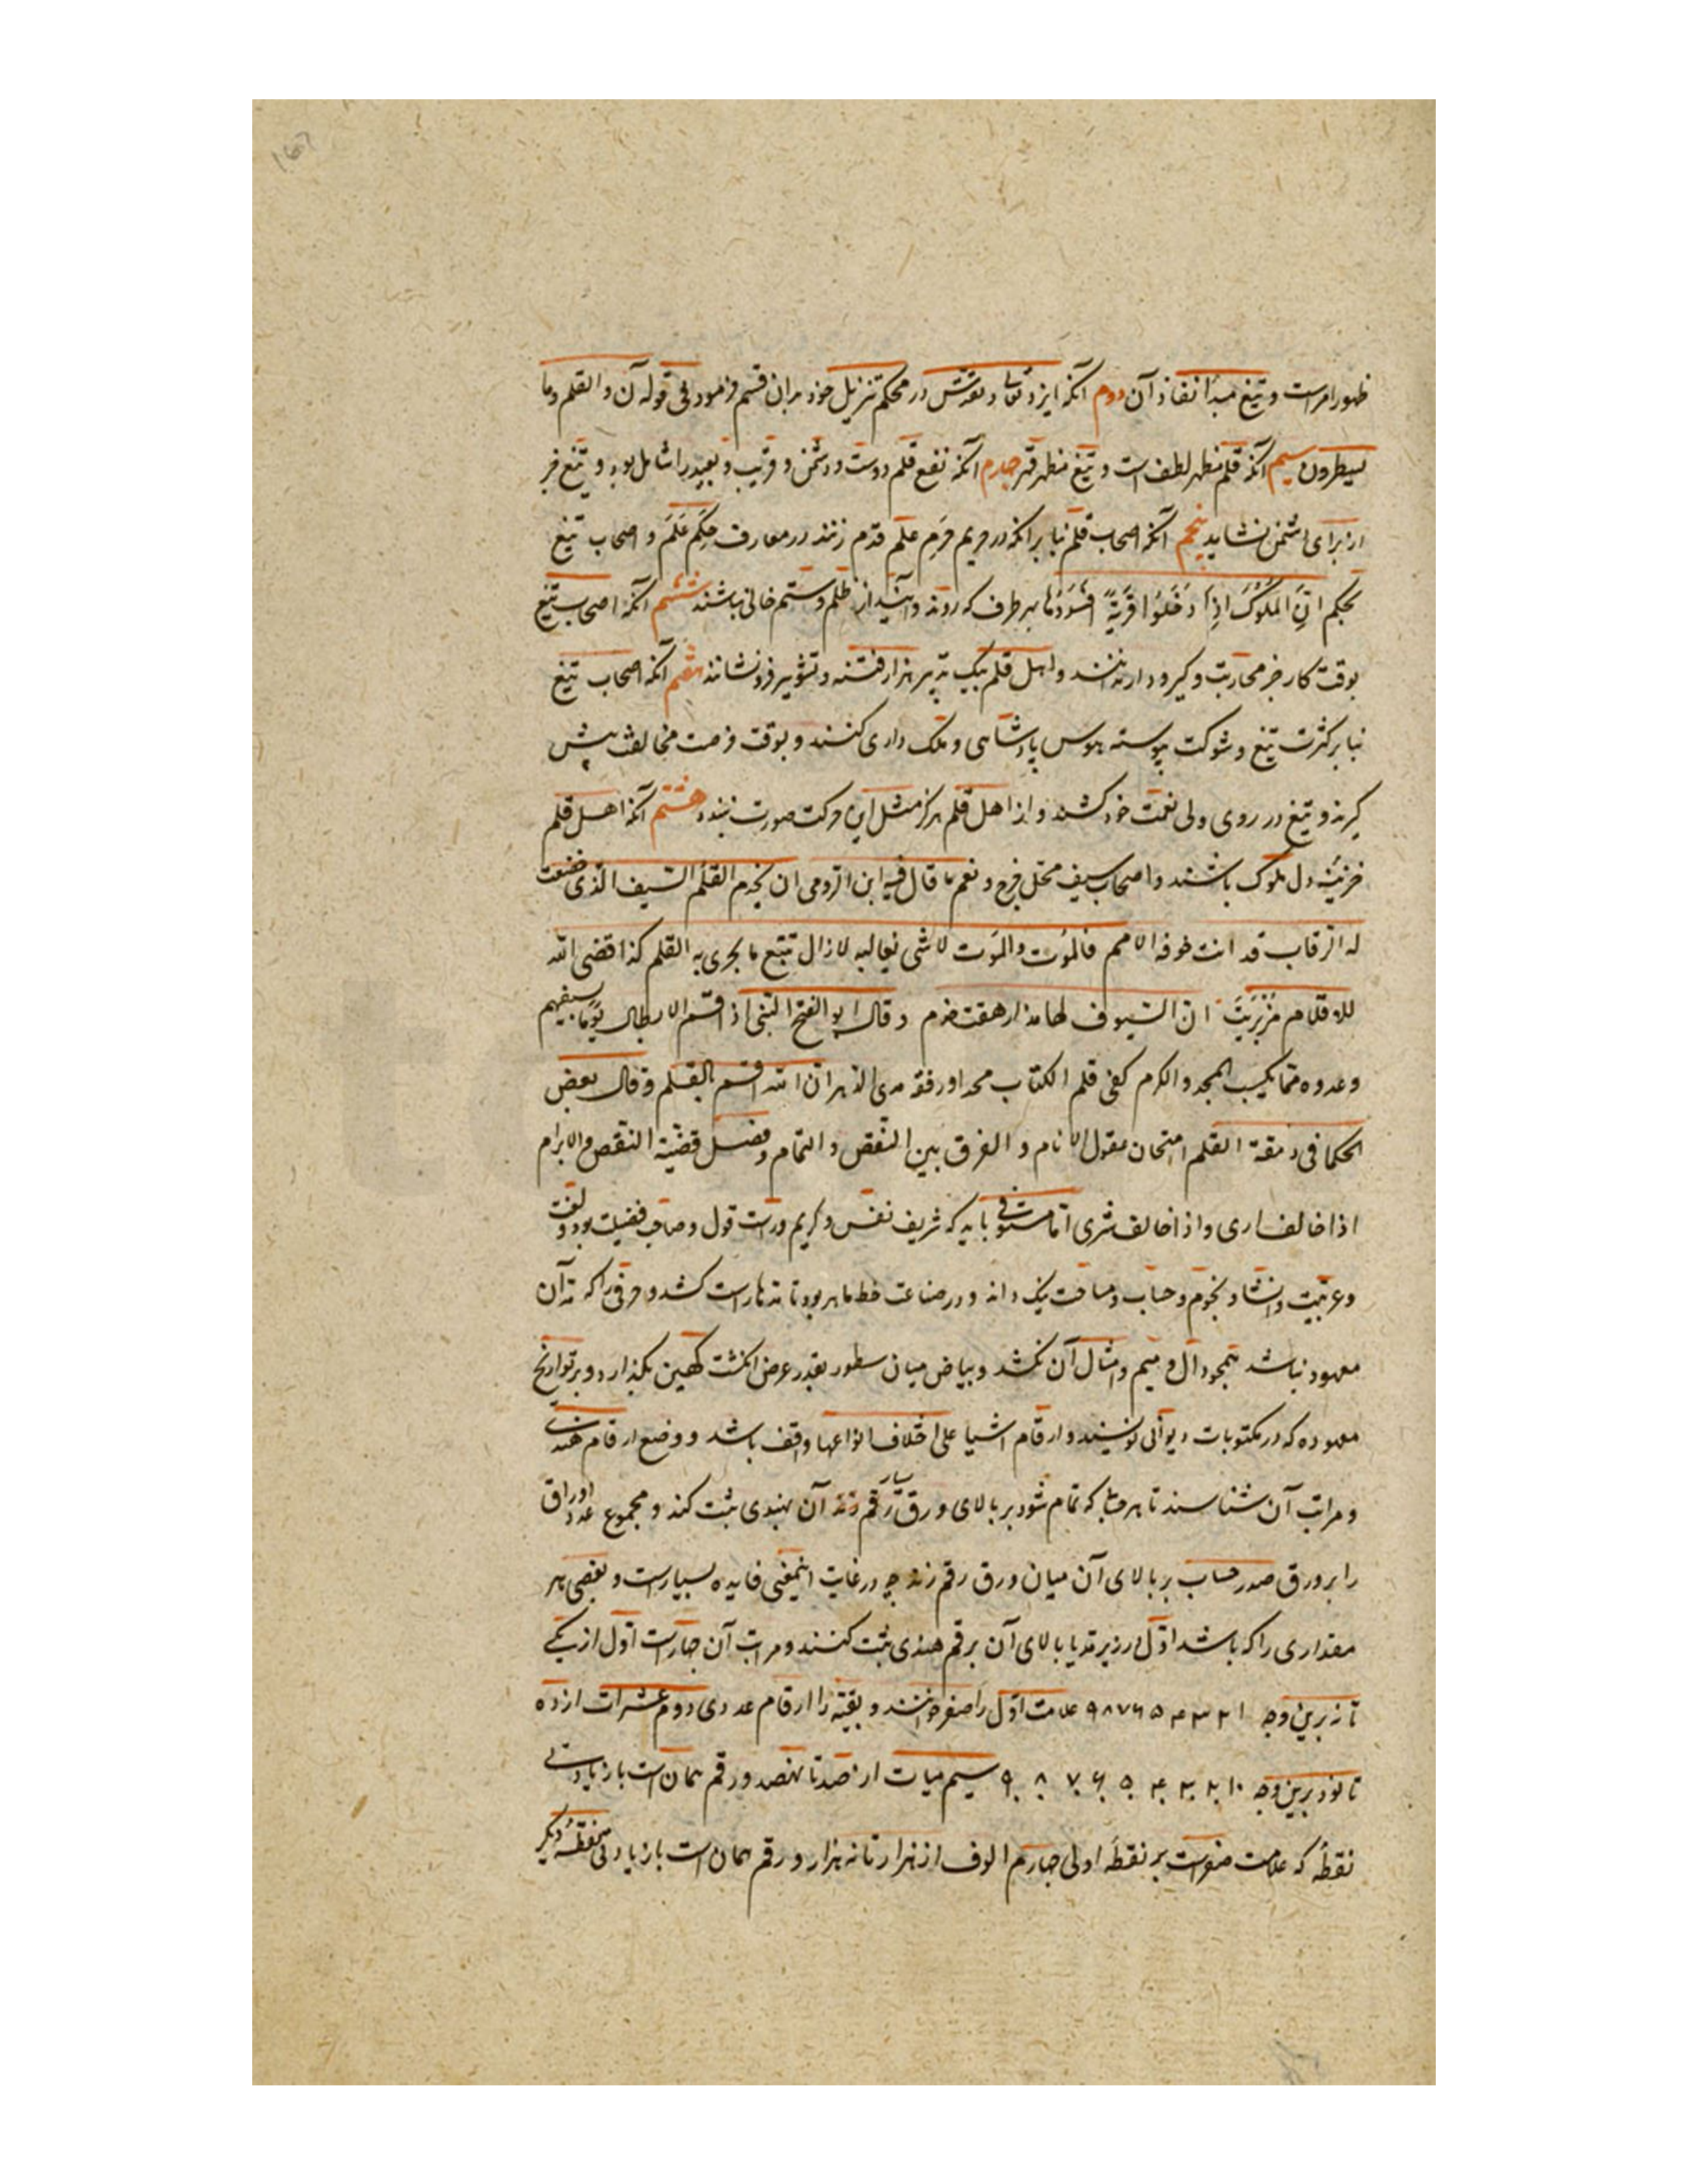 ظهور امرست و تیغ مبدأ نفاذ آن دوم آنکه ایزد تعالی و تقدّس در محکم تنزیل خود بدان قسم فرمود فی قوله ن والقلم وما
یسطرون سیم آنکه قلم مظهر لطف است و تیغ مظهر قهر چهارم آنکه نفع قلم دوست و دشمن و قریب و بعید را شامل بود و تیغ جز
از برای دشمن نشاید پنجم آنکه اصحاب قلم بنابر آنکه در حریم حَرَم علم قدم زنند در معارف حِکَم عَلَمَ و اصحاب تیغ
بحکم انّ الملوک اذا دخلوا قریة افسدوها بهر طرف که روند و آیند از ظلم و ستم خالی نباشند ششم آنکه اصحاب تیغ
بوقت کار جز محاربت و گیرودار ندانند و اهل قلم بیک تدبیر هزار فتنه و تشویر فرو نشانند هفتم آنکه اصحاب تیغ
بنابر کثرت تیغ و شوکت پیوسته هوس پادشاهی و ملک داری کنند و بوقت فرصت مخالفت پیش
گیرند و تیغ در روی ولی نعمت خود کشند و از اهل قلم هرگز مثل این حرکت صورت نبندد هشتم آنکه اهل قلم
خزینۀ دل ملوک باشند و اصحاب سیف محل فرج و نعم ما قال فیه ابن الرومی ان یخدم القلمُ السّیف الذی خضعت
له الرقاب قد انت خوفه الامم فالموت والموت لا شی یغالبه لازال تتبع ما یجری به القلم کذا قضی الله
للاقلام مُزْبُرِیَتَ انّ السّیوف لها مذ ارهفت خدم و قال ابو الفتح البستی اذا اقسم الابطال یوما بسیفهم
وعدوه مما یکسب المجد والکرم کفی قلم الکتاب مجدا ورفعة مدی الدهر انّ الله اقسم بالقلم و قال بعض
الحکما فی دمقة القلم امتحان عقول الانام و الفرق بین النقص و التمام وفضل قضیّة النقص والابرام
اذا خالف اری و اذا خالف شری امّا مستوفی باید که شریف نفس و کریم و راست قول و صاحب فضیلت بود و لغت
و عربیّت و انشا و نجوم و حساب و مساحت نیک داند و در صناعت خط ماهر بود تا مدها راست کشد و حرفی را که مد آن
معهود نباشد همچو دال و میم و امثال آن نکشد و بیاض میان سطور بقدر عرض انگشت کهین بگذارد و بر تواریخ
معهوده که در مکتوبات دیوانی نویسند و ارقام اشیا علی اختلاف انواعها واقف باشد و وضع ارقام هندی
و مراتب آن شناسند تا هر حساب که تمام شود بر بالای ورق رقم زند آن بهندی ثبت کند و مجموع عدد اوراق
را بر ورق صدر حساب بر بالای آن میان ورق رقم زند چه در غایت اینمعنی فایده بسیارست و بعضی هر
مقداری را که باشد اوّل در زیر مد یا بالای آن برقم هندی ثبت کنند و مراتب آن چهارست اوّل از یکی
تا نه برین وجه ۱ ۲ ۳ ۴ ۵ ۶ ۷ ۸ ۹ علامت اوّل را صفر خوانند و بقیّه را ارقام عددی دوم عشرات از ده
تا نود برین وجه ۱۰ ۲۰ ۳۰ ۴۰ ۵۰ ۶۰ ۷۰ ۸۰ ۹۰ سیم میات از صد تا نهصد و رقم همان است با زیادتی
نقطۀ که علامت صفرست بر نقطۀ اولی چهارم الوف از هزار تا نه هزار و رقم همان است با زیادتی نقطۀ دیگر